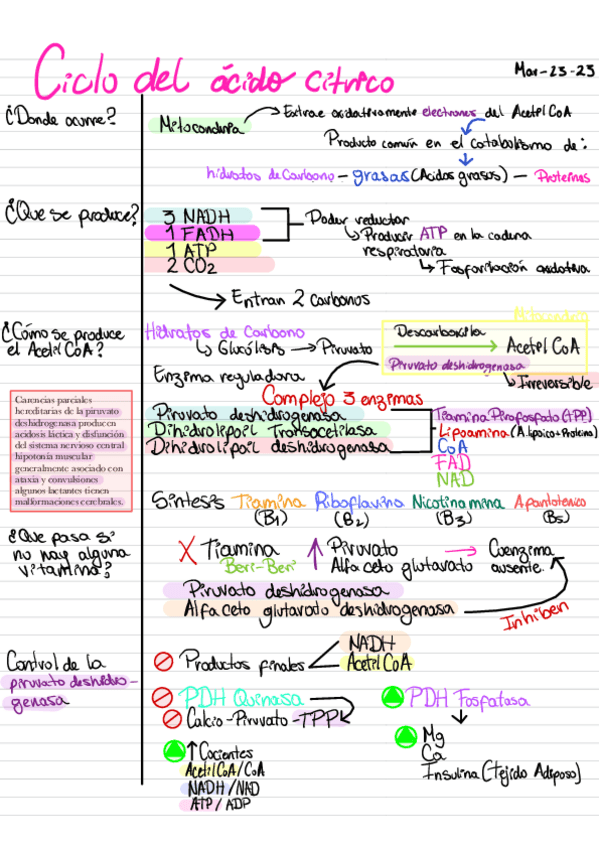 Ciclo del ácido cítrico
Mar-23-23
¿Donde ocurre?
Mitocondria
Extrae oxidativamente electrones del Acetil CoA
Producto común en el catabolismo de:
hidratos de Carbono - grasas (Acidos grasos) - Proteinas
¿Que se produce?
3 NADH
1 FADH
1 ATP
2 CO2
Poder reductor
Producir ATP en la cadena
respiratoria
Fosforilación oxidativa
Entran 2 carbonos
¿Cómo se produce
el Acetil CoA?
Hidratos de Carbono
Glucólisis → Piruvato
Mitocondria
Descarboxila
Acetil CoA
Piruvato deshidrogenasa
Irreversible
Enzima reguladora
Complejo 3 enzimas
Piruvato deshidrogenasa
Dihidrolipoil Transacetilasa
Dihidrolipoil deshidrogenasa
Tiamina Pirofosfato (TPP)
Lipoamina (A.lipoico+Proteina)
CoA
FAD
NAD
Carencias parciales
hereditarias de la piruvato
deshidrogenasa producen
acidosis láctica y disfunción
del sistema nervioso central
hipotonía muscular
generalmente asociado con
ataxia y convulsiones
algunos lactantes tienen
malformaciones cerebrales.
Sintesis Tiamina Riboflavina Nicotinamina A.pantotenico
(B1) (B2) (B3) (B5)
¿Que pasa si
no hay alguna
vitamina?
X Tiamina ↑ Piruvato → Coenzima
Beri-Beri Alfa ceto glutarato ausente.
Piruvato deshidrogenasa
Alfa ceto glutarato deshidrogenasa
Inhiben
Control de la
piruvato deshidro-
genasa
Productos finales
NADH
Acetil CoA
PDH Quinasa
Calcio-Piruvato-TPP
↑ Cocientes
Acetil CoA/CoA
NADH/NAD
ATP/ADP
PDH Fosfatasa
Mg
Ca
Insulina (Tejido Adiposo)